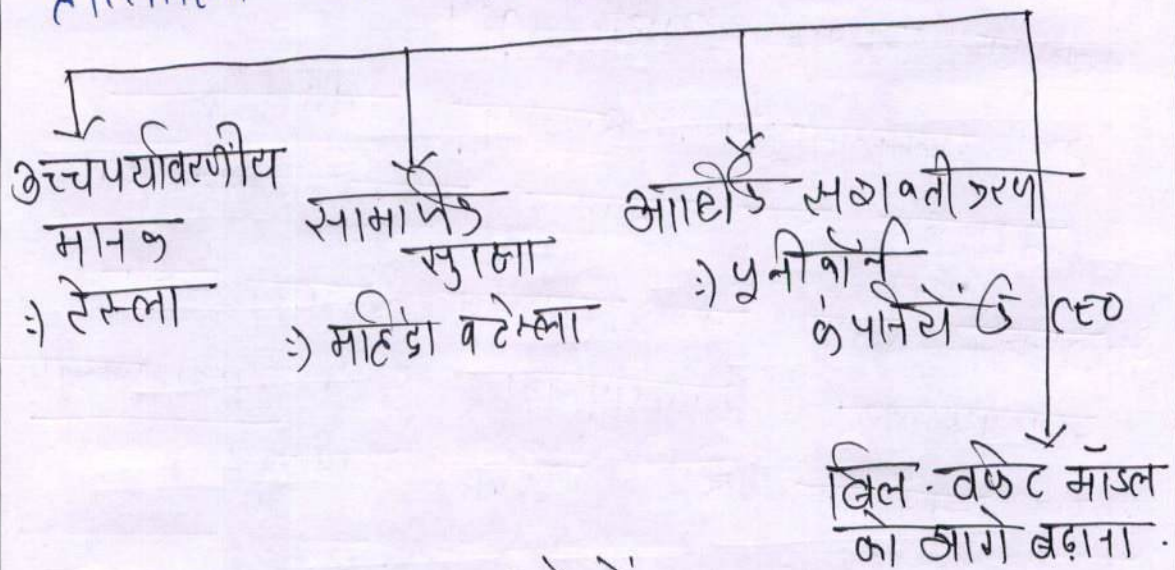 उच्चपर्यावरणीय
मानक
:) टेस्ला
सामाजिक
सुरक्षा
:) महिंद्रा व टेस्ला
आर्थिक सशक्तीकरण
:) यूनीकॉर्न
कंपनियों के CEO
बिल - वफेट मॉडल
को आगे बढ़ाना .